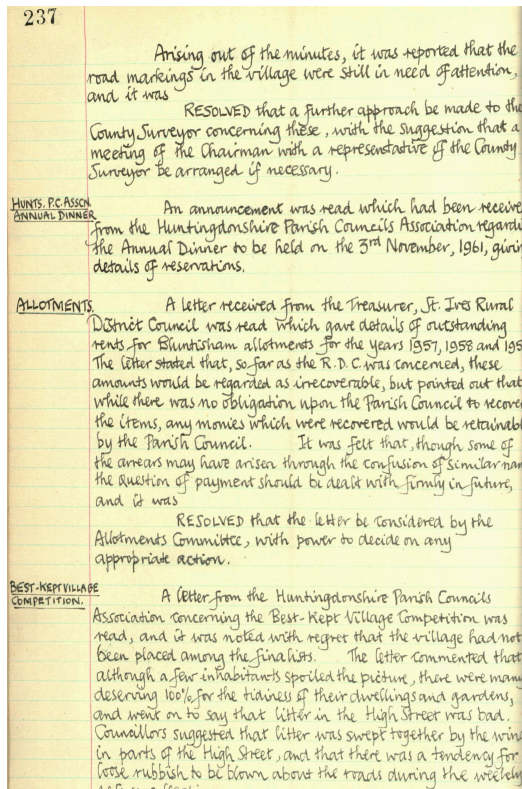 237
Arising out of the minutes, it was reported that the
road markings in the village were still in need of attention,
and it was
RESOLVED that a further approach be made to the
County Surveyor concerning these, with the suggestion that a
meeting of the Chairman with a representative of the County
Surveyor be arranged if necessary.
HUNTS. P.C. ASSCN.
ANNUAL DINNER
An announcement was read which had been receive
from the Huntingdonshire Parish Councils Association regardi
the Annual Dinner to be held on the 3rd November, 1961, givin
details of reservations.
ALLOTMENTS.
A letter received from the Treasurer, St. Ives Rural
District Council was read which gave details of outstanding
rents for Bluntisham allotments for the years 1957, 1958 and 195
The letter stated that, so far as the R.D.C. was concerned, these
amounts would be regarded as irrecoverable, but pointed out that
while there was no obligation upon the Parish Council to recove
the items, any monies which were recovered would be retainabl
by the Parish Council. It was felt that, though some of
the arrears may have arisen through the confusion of similar nam
the question of payment should be dealt with firmly in future,
and it was
RESOLVED that the letter be considered by the
Allotments Committee, with power to decide on any
appropriate action.
BEST-KEPT VILLAGE
COMPETITION.
A letter from the Huntingdonshire Parish Councils
Association concerning the Best-Kept Village Competition was
read, and it was noted with regret that the village had not
been placed among the finalists. The letter commented that
although a few inhabitants spoiled the picture, there were many
deserving 100% for the tidiness of their dwellings and gardens,
and went on to say that litter in the High Street was bad.
Councillors suggested that litter was swept together by the wind
in parts of the High Street, and that there was a tendency for
loose rubbish to be blown about the roads during the weekly